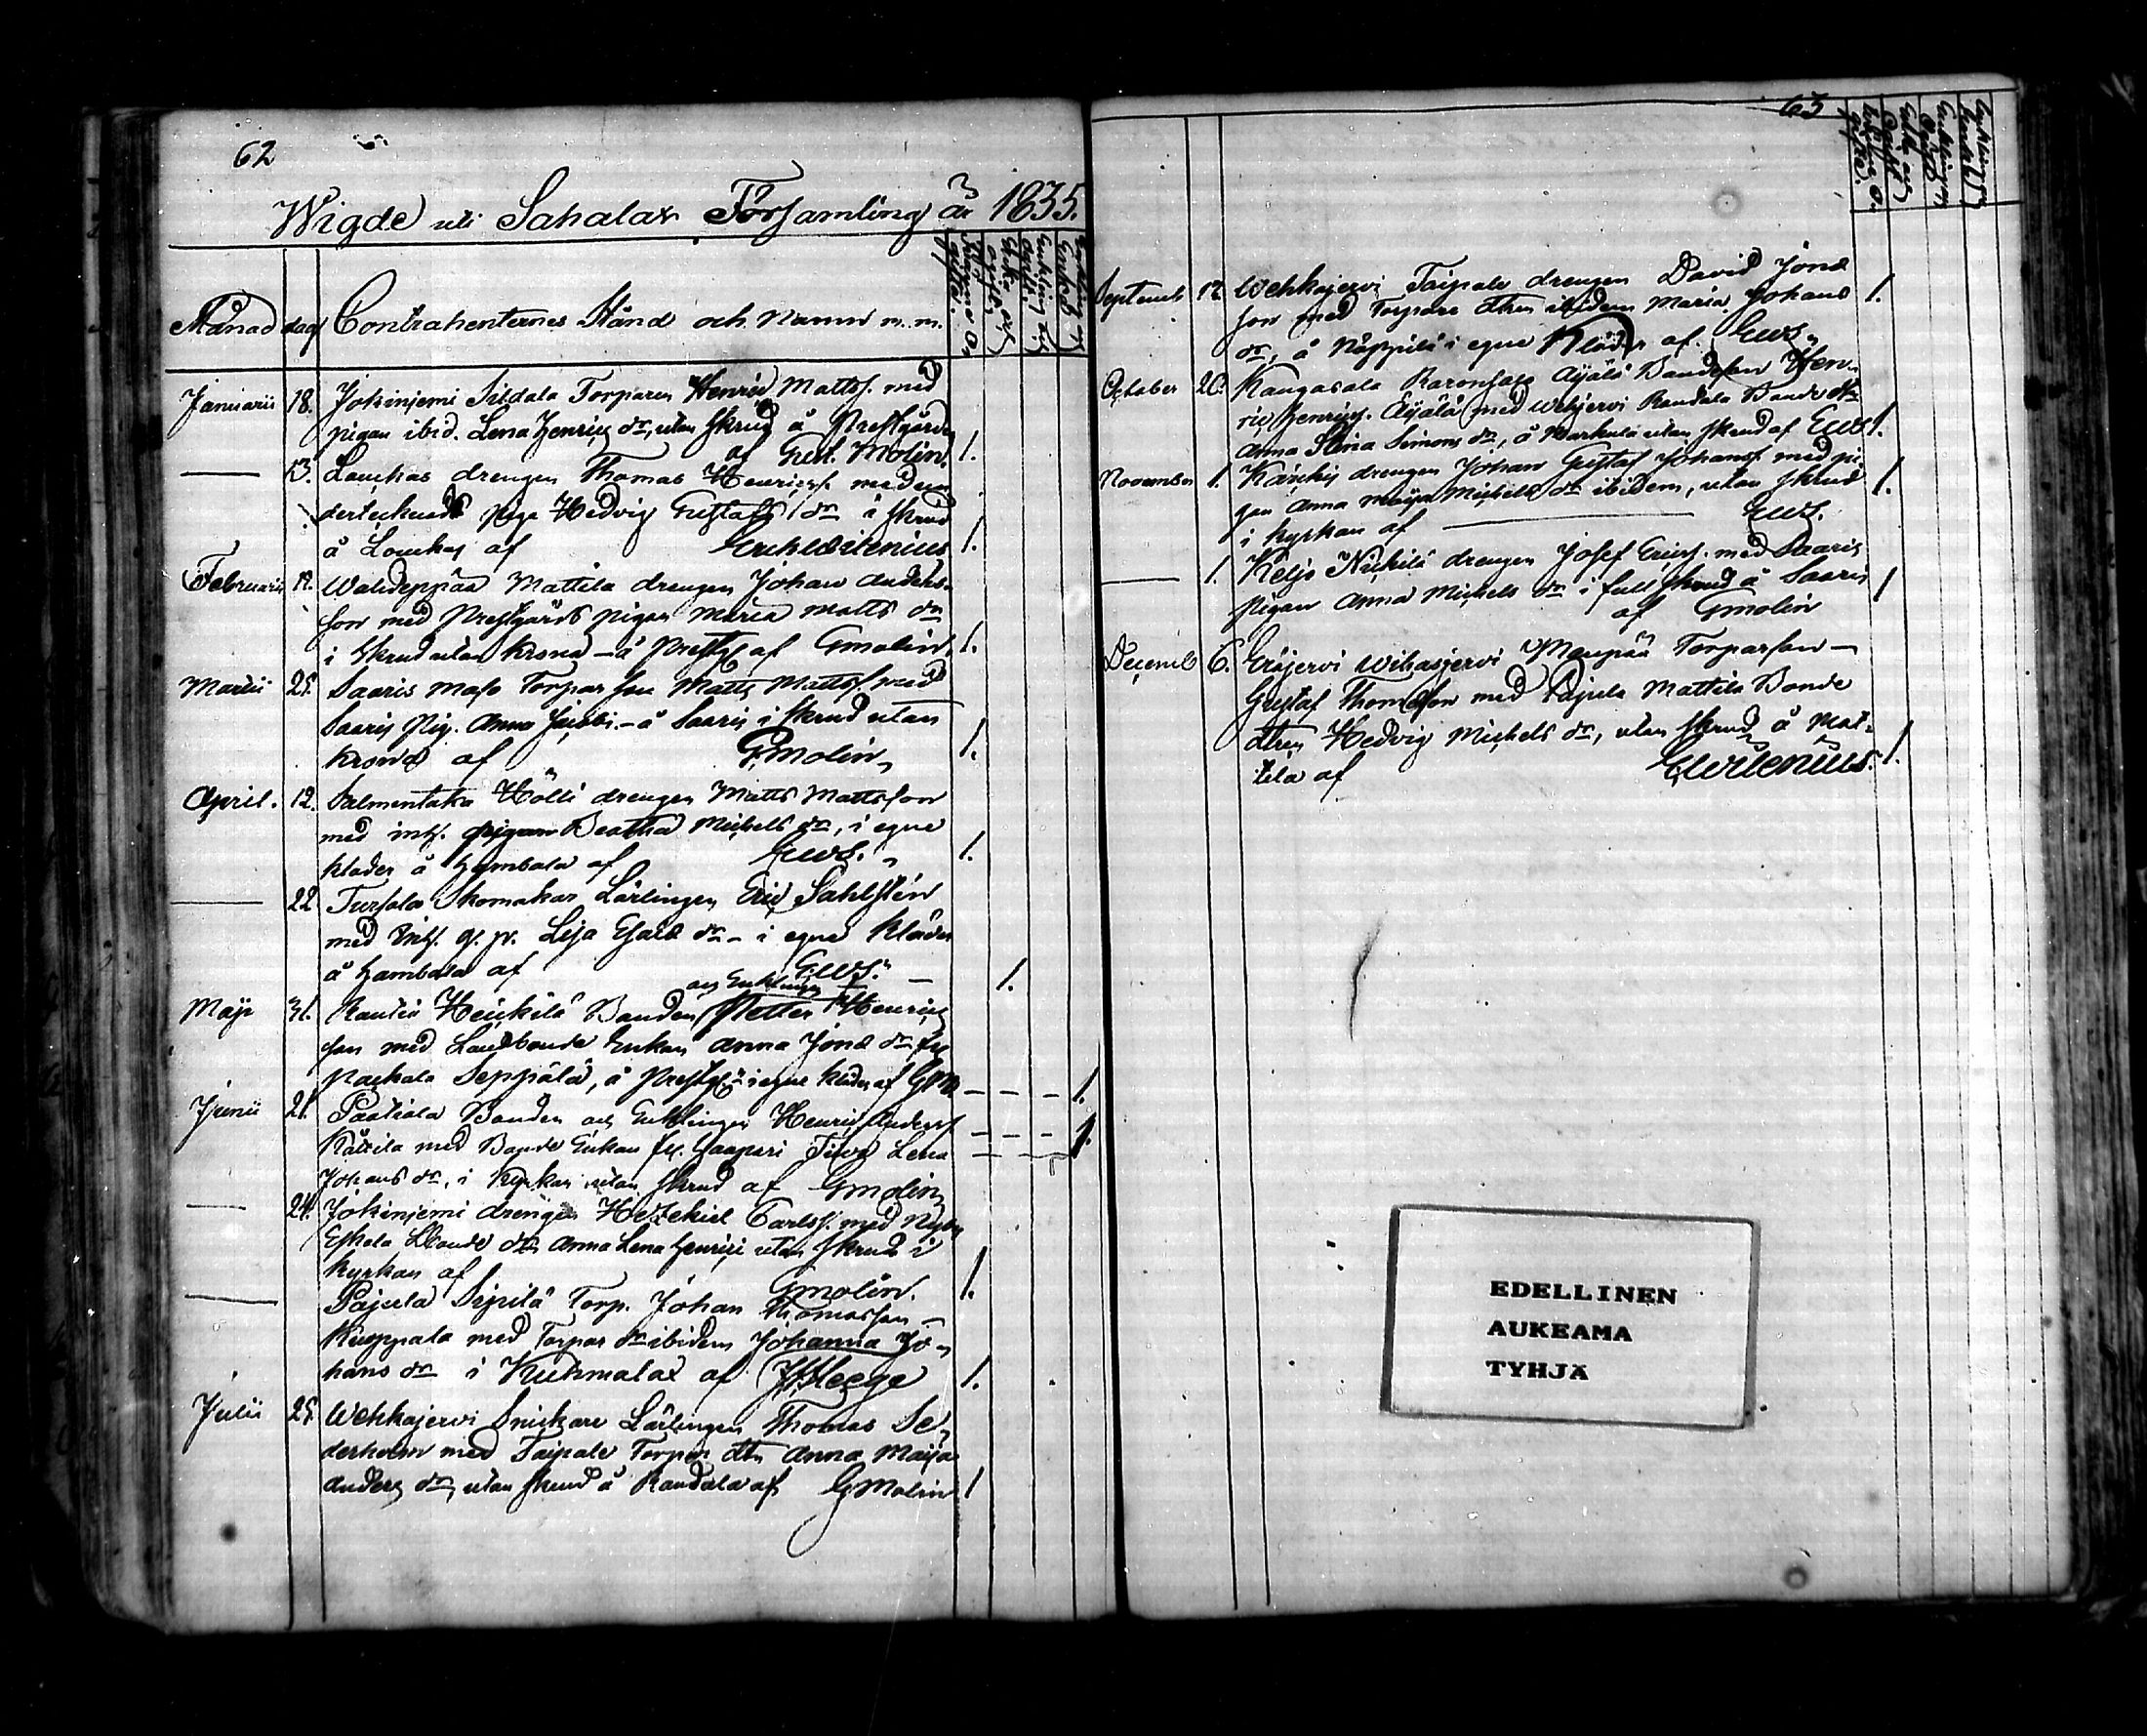 62
Wigde uti Sahalax Församling år 1835.
Månad dag Contrahenternes Stånd och Namn m. m.
Januarii 18. Jokiniemi Sildala Torparen Henric Mattss. med
pigan ibid. Lena Henrics dr, utan skrud å Prestgården
af Gust. Molin. 1.
— 23. Loukas drengen Thomas Henricss. med un
derteknads piga Hedvig Gustafs dr i skrud
å Loukas af Wilenius 1.
Februarii 12. Waldeppää Mattila drengen Johan Anders-
son med Prestgårds pigan Maria Matts dr
i Skrud utan Krona - å Prestg. af GMolin. 1.
Martii 25. Saaris Torpar son Matts Mattss. med
Saaris Pig. Anna - å Saaris i skrud utan
krona af GMolin 1.
April. 12. Salmentaka Hölli drengen Matts Mattsson
med inhs. pigan Beatha Michels dr, i egna
kläder å af EWS. 1.
— 22 Tursola Skomakar Lärlingen Eric Sahlstén
med Inhs. Lisa Esaias dr - i egna kläder
å af EWS. 1.
och Enklingen
Maji 31. Rautu Heickilä Bonden Petter Henrics
son med Landbonde Enkan Anna Jonas dr fr.
Seppälä, å Prestg. i egna kläder af GM - - - 1.
Junii 21. Paatiala Bonden och Enklingen Henric Anderss.
med Bonde Enkan fr. Lena - - - 1.
Johans dr, i Kyrkan utan skrud af GMolin
— 24. Jokiniemi drengen Hezekiel Carlss. med
Eskola Bonde dr Anna Lena Henrici utan skrud i
kyrkan af GMolin. 1.
— Pajula Sipilä Torp. Johan Thomasson -
Kuoppala med Torpar dr ibidem Johanna Jo-
hans dr i Kuhmalax af 1.
Julii 25. Wehkajervi Snickare Lärlingen Thomas Se-
derholm med Taipale Torpar dtn Anna Maija
Anders dr, utan skrud å Raudala af GMolin 1
63
Septemb 12. Wehkajervi Taipale drengen David Jonas
son med Torpare dtren ibidem Maria Johans 1.
dr, å i egna Kläder af EWS.
October 20. Kangasala Äijälä Bondeson Hen-
ric Henricss. Äijälä med Wehjervi Raudala Bonde dtr
Anna Stina Simons dr, å utan skrud af EWS 1.
November 1. drengen Johan Gustaf Johanss. med pi-
gan Anna Maija Michels dr ibidem, utan skrud 1.
i kyrkan af — EWS.
— 1. Keljo Nickilä drengen Josef Ericss. med Saaris
pigan Anna Michels dr i full skrud å Saaris 1
af GMolin
Decemb 6. Eräjervi Wihasjervi Torparson —
Gustaf Thomasson med Pajula Mattila Bonde
dtren Hedvig Michels dr, utan skrud å Mat-
tila af Wilenius. 1.
EDELLINEN
AUKEAMA
TYHJÄ